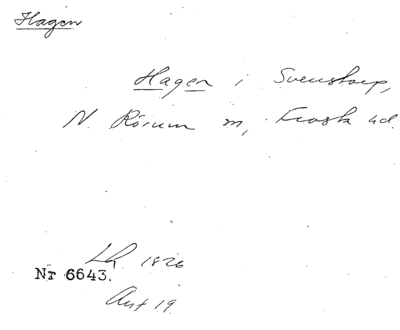 Hagen
Hagen i Svenstorp,
N. Rörum m, Frosta hd.
Lh. 1826
Nr 6643.
Ant 19